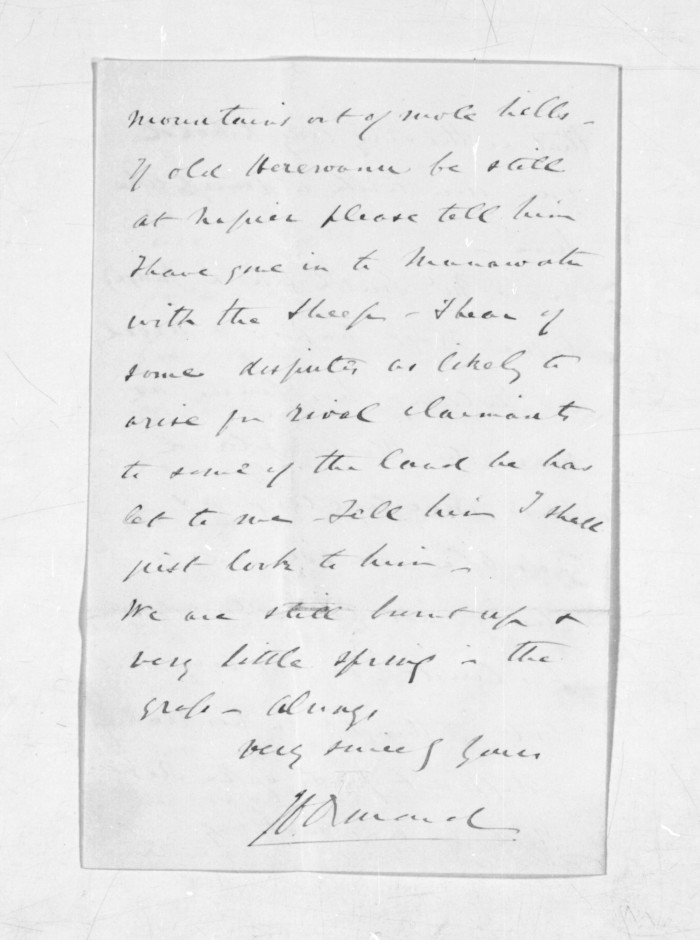 mountains out of mole hills -
If old Herewanu be still
at Napier please tell him
I have gone in to Manawatu
with the sheep - I hear of
some disputes as likely to
arise fm rival claimants
to some of the land he has
let to me - Tell him I shall
just look to him -
We are still burnt up &
very little spring in the
grass - Always
very sincy yours
J D Ormond